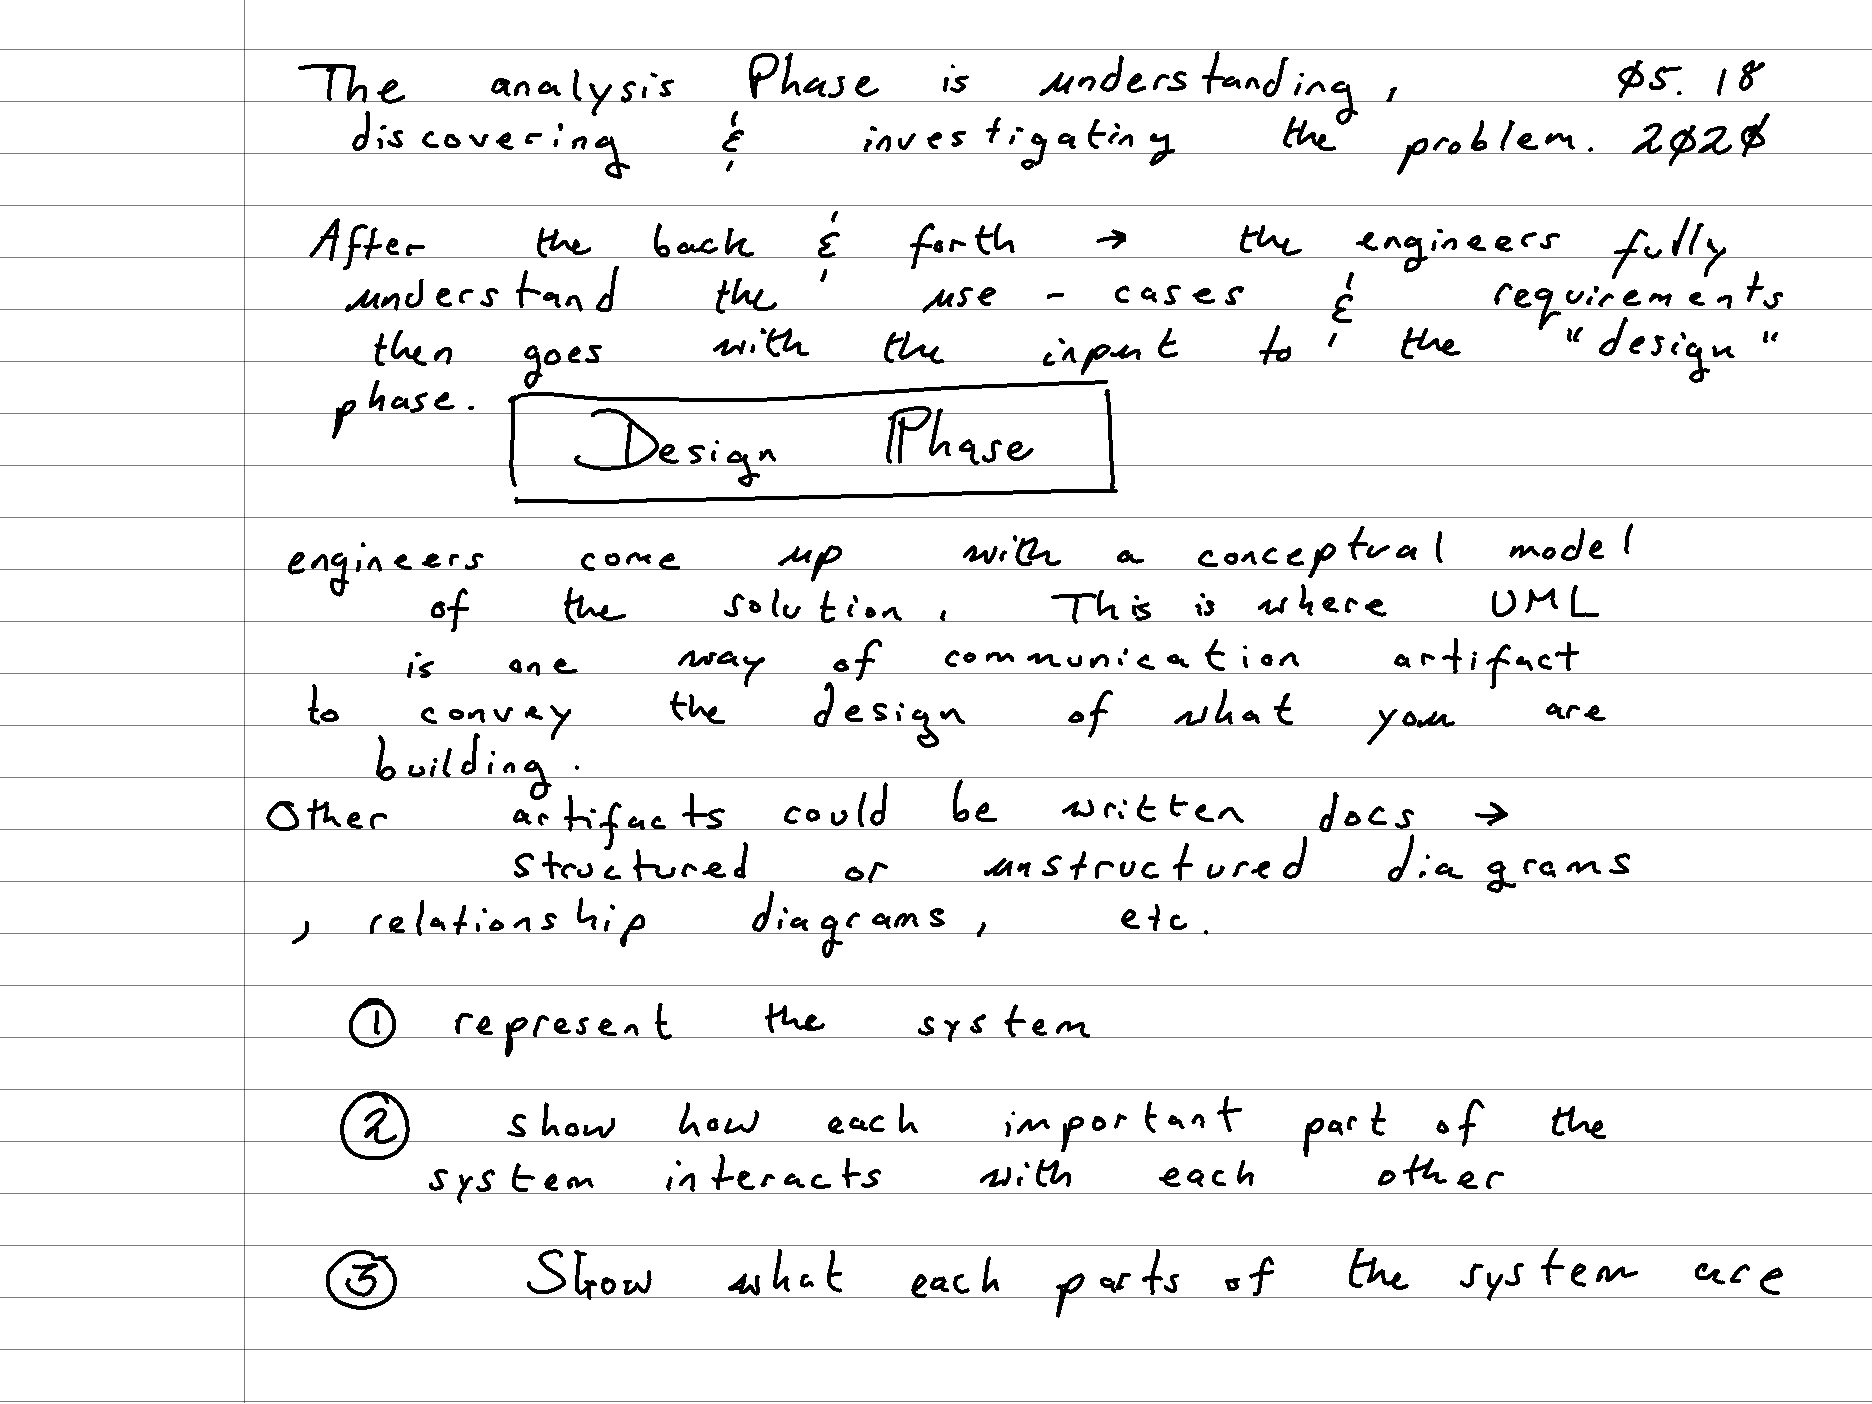 The analysis Phase is understanding, 05.18
discovering & investigating the problem. 2020
After the back & forth → the engineers fully
understand the use-cases & requirements
then goes with the input to the "design"
phase.
Design Phase
engineers come up with a conceptual model
of the solution. This is where UML
is one way of communication artifact
to convey the design of what you are
building.
Other artifacts could be written docs →
structured or unstructured diagrams
, relationship diagrams, etc.
① represent the system
② show how each important part of the
system interacts with each other
③ Show what each parts of the system are